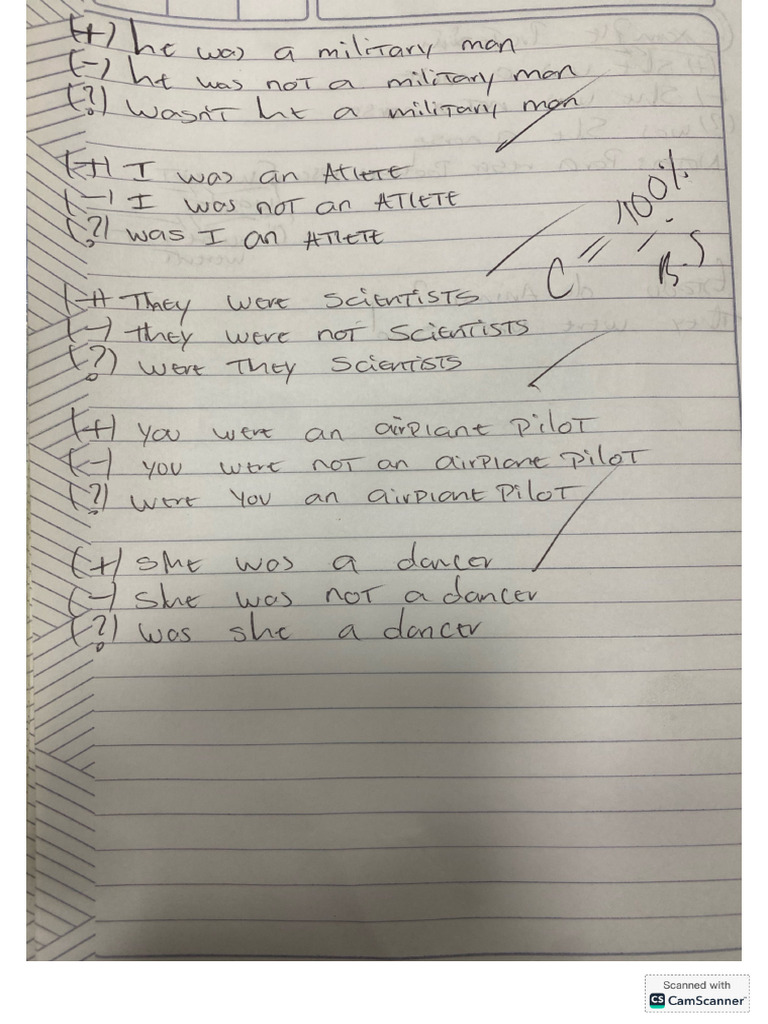 (+) he was a military man
(-) he was not a military man
(?) Wasn't he a military man
(+) I was an Atlete
(-) I was not an Atlete
(?) was I an Atlete
(+) They were scientists
(-) they were not scientists
(?) were They scientists
(+) you were an airplane pilot
(-) you were not an airplane pilot
(?) were you an airplane pilot
(+) she was a dancer
(-) she was not a dancer
(?) was she a dancer
C 100%
B.S
Scanned with
CS CamScanner